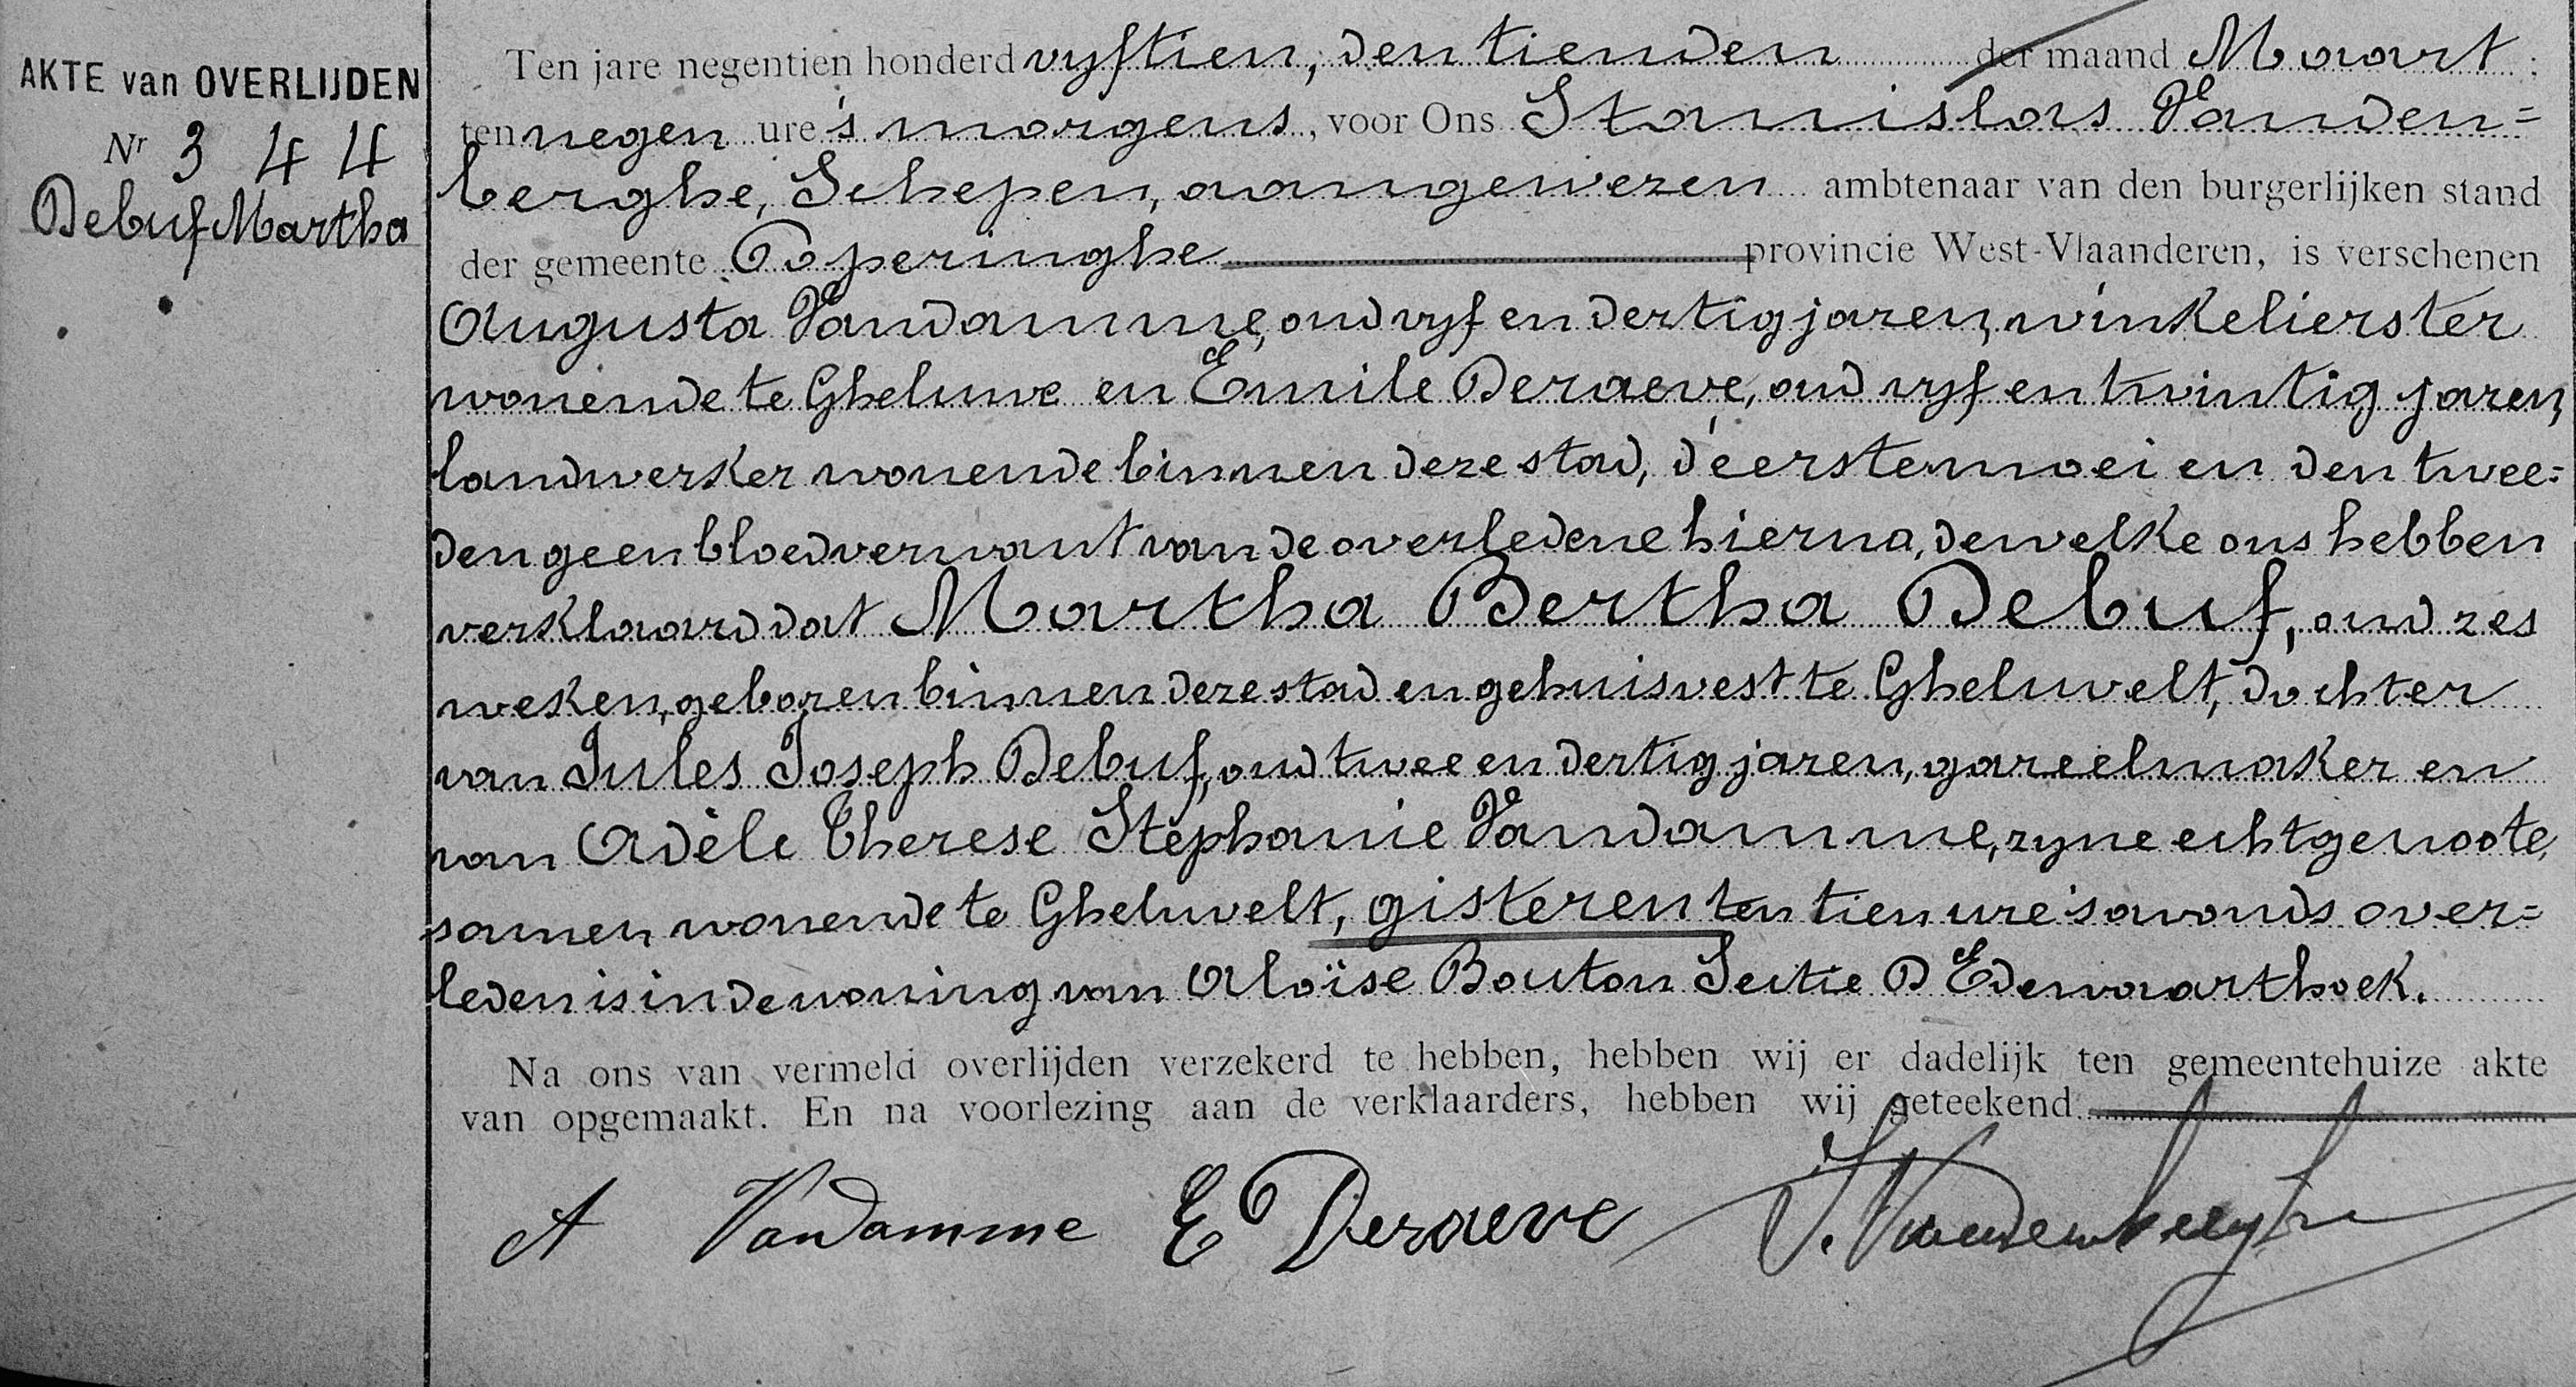 AKTE van OVERLIJDEN
Nr 344
Debuf Martha
Ten jare negentien honderd vyftien, den tienden der maand Maart;
ten negen ure 's morgens, voor Ons Stanislas Vanden=
berghe, Schepen, aangewezen ambtenaar van den burgerlijken stand
der gemeente Poperinghe provincie West-Vlaanderen, is verschenen
Augusta Vandamme, oud vyf en dertig jaren, winkelierster
wonende te Gheluwe en Emile Deraeve, oud vyf en twintig jaren,
landwerker wonende binnen deze stad, d'eerste moei en den twee=
den geen bloedverwant van de overledene hierna, dewelke ons hebben
verklaard dat Martha Bertha Debuf, oud zes
weken, geboren binnen deze stad en gehuisvest te Gheluvelt, dochter
van Jules Joseph Debuf, oud twee en dertig jaren, gareelmaker en
van Adèle Therese Stéphanie Vandamme, zyne echtgenoote,
samen wonende te Gheluvelt, gisteren ten tien ure 's avonds over=
leden is in de woning van Aloïse Bouton Sectie D Edewaarthoek.
Na ons van vermeld overlijden verzekerd te hebben, hebben wij er dadelijk ten gemeentehuize akte
van opgemaakt. En na voorlezing aan de verklaarders, hebben wij geteekend
A Vandamme E Deraeve S. Vandenberghe